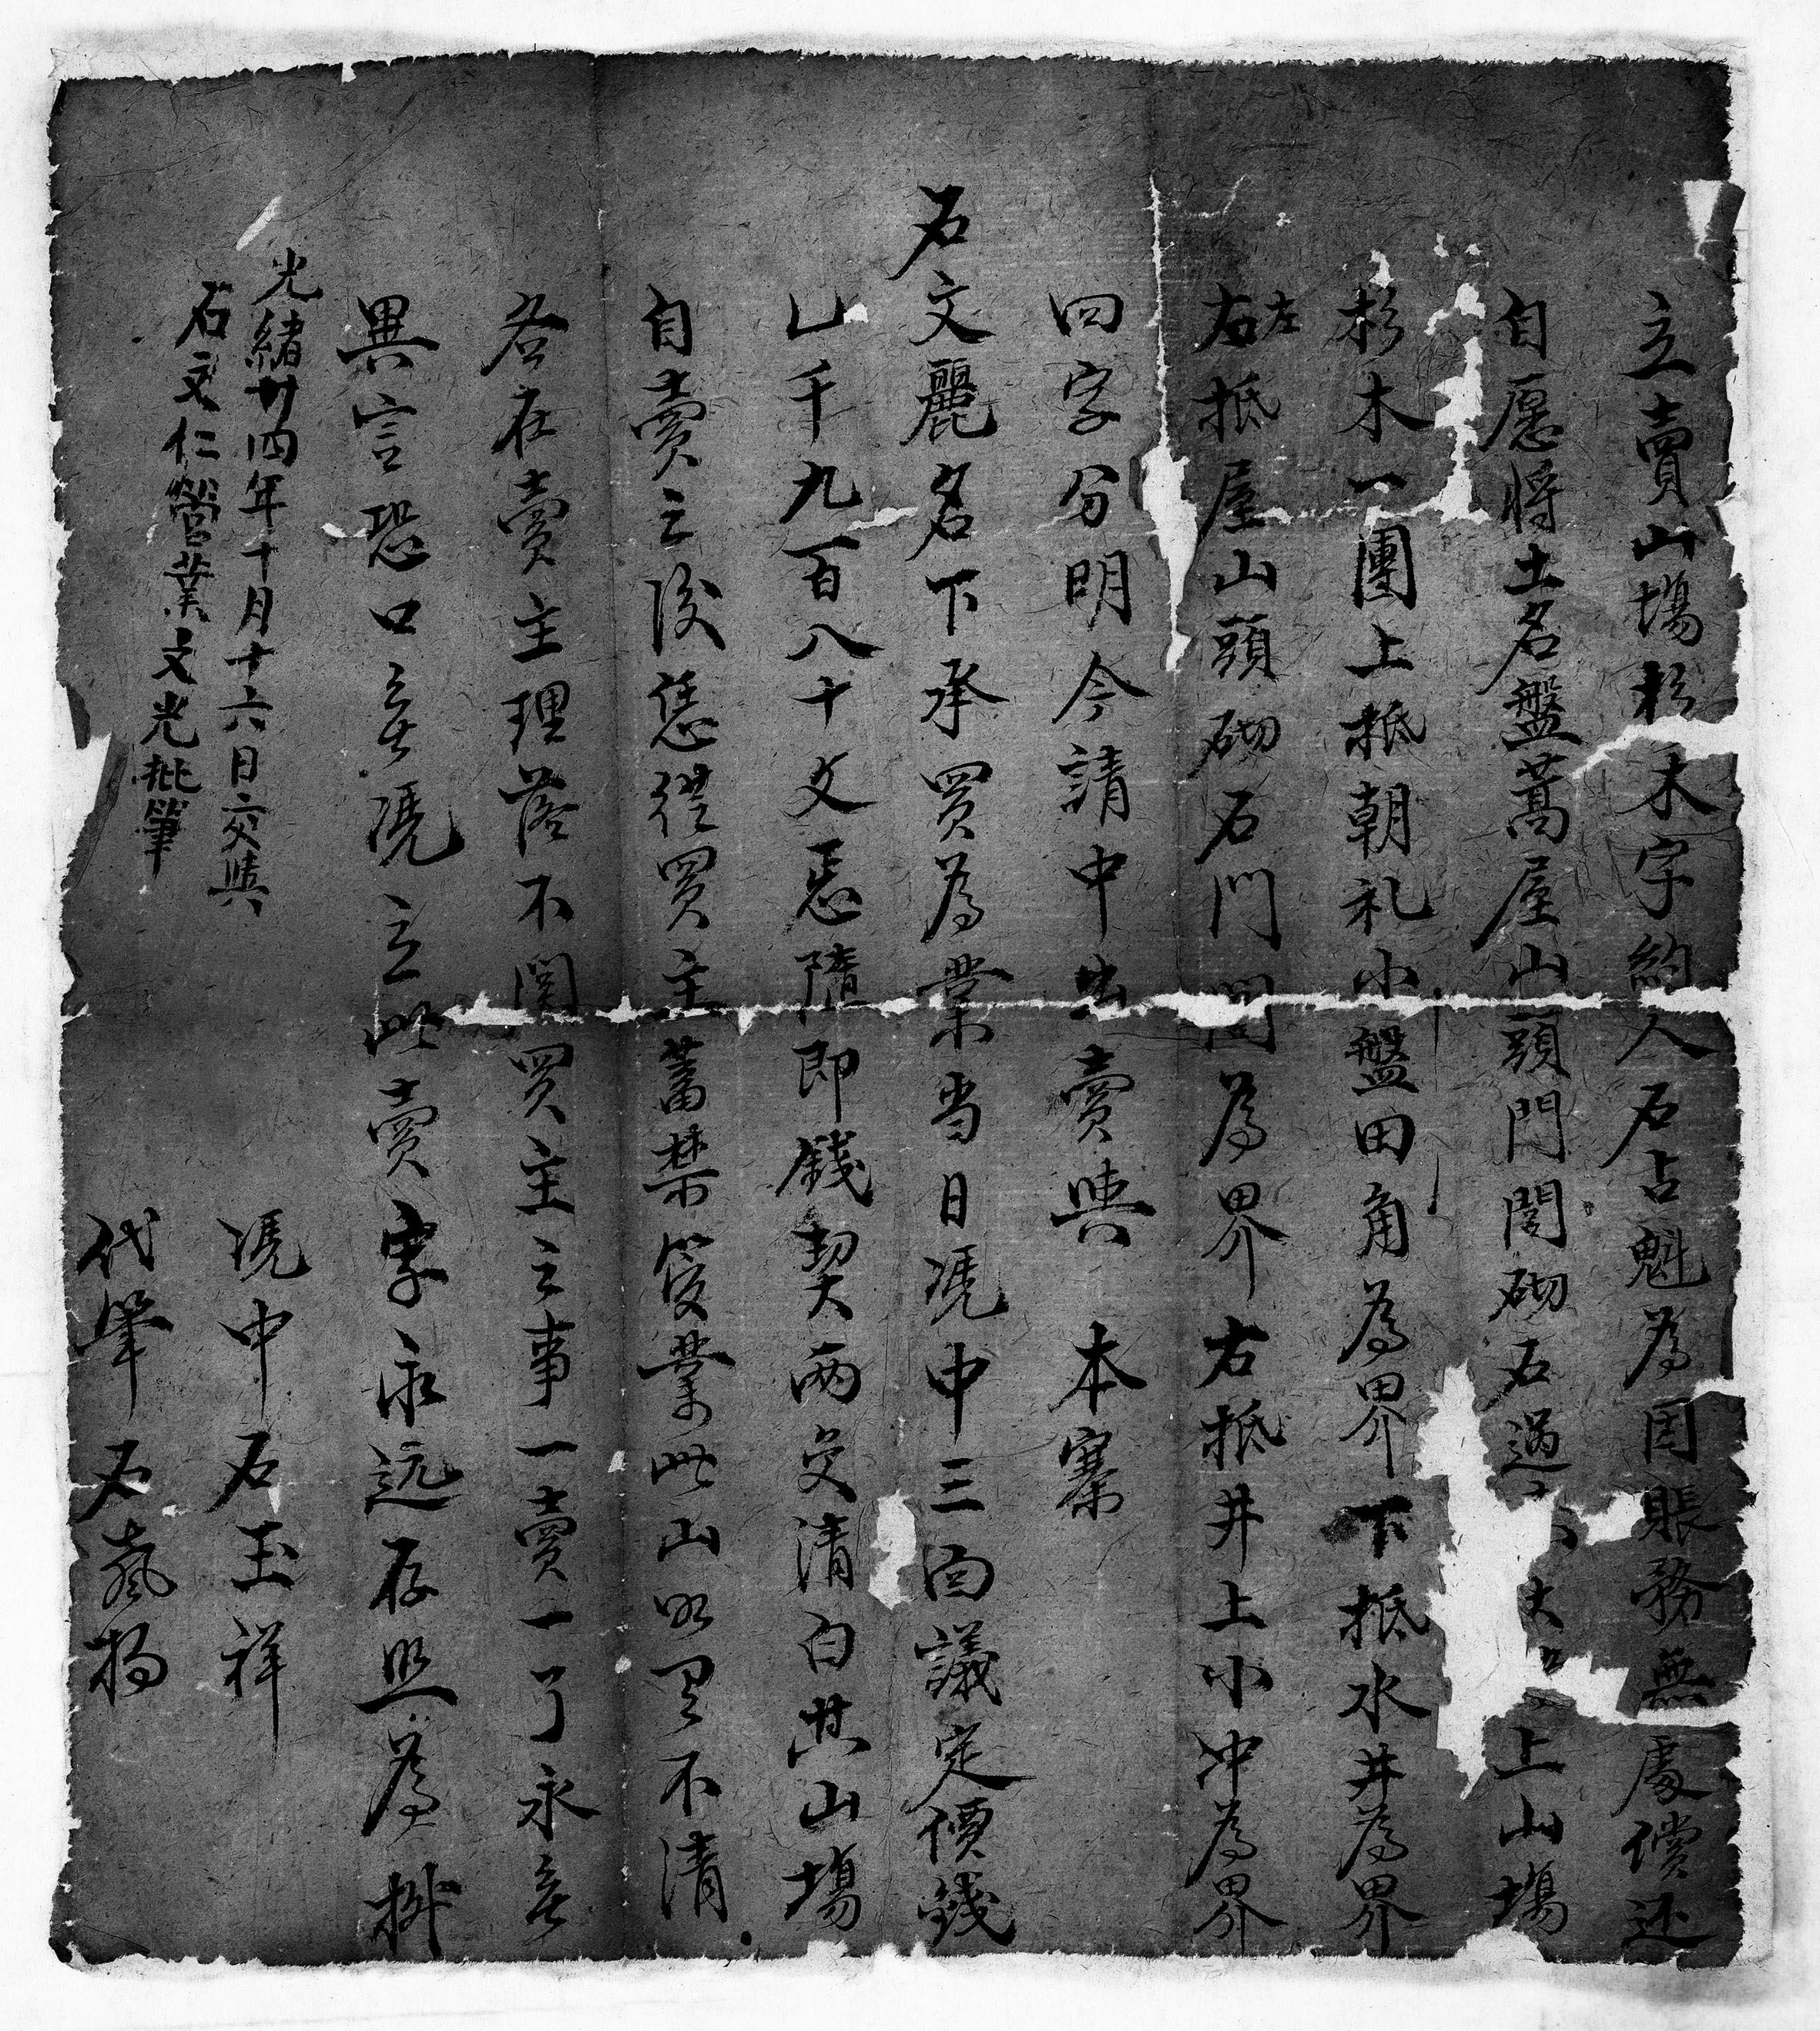 立賣山塲杉木字約人石占魁為因賬務無處償还
自愿將土名盤蒿屋山頭門閣砌石過大上山塲
杉木一團上抵朝礼小盤田角為界下抵水井為界
左抵屋山頭砌石門閣為界右抵井上小冲為界
四字分明今請中出賣與 本寨
石文麗名下承買為業当日凭中三面議定價錢
乚千九百八十文悉隨即錢契两交清白其山塲
自賣之後恁從買主蓄禁管業此山如有不清
咎在賣主理落不関買主之事一賣一了永無
異言恐口無凴立此賣字永远存照為㨿
光緒卅四年十月十六日交與
石文仁營業文光批筆
凴中石玉祥
代筆石嵗揚